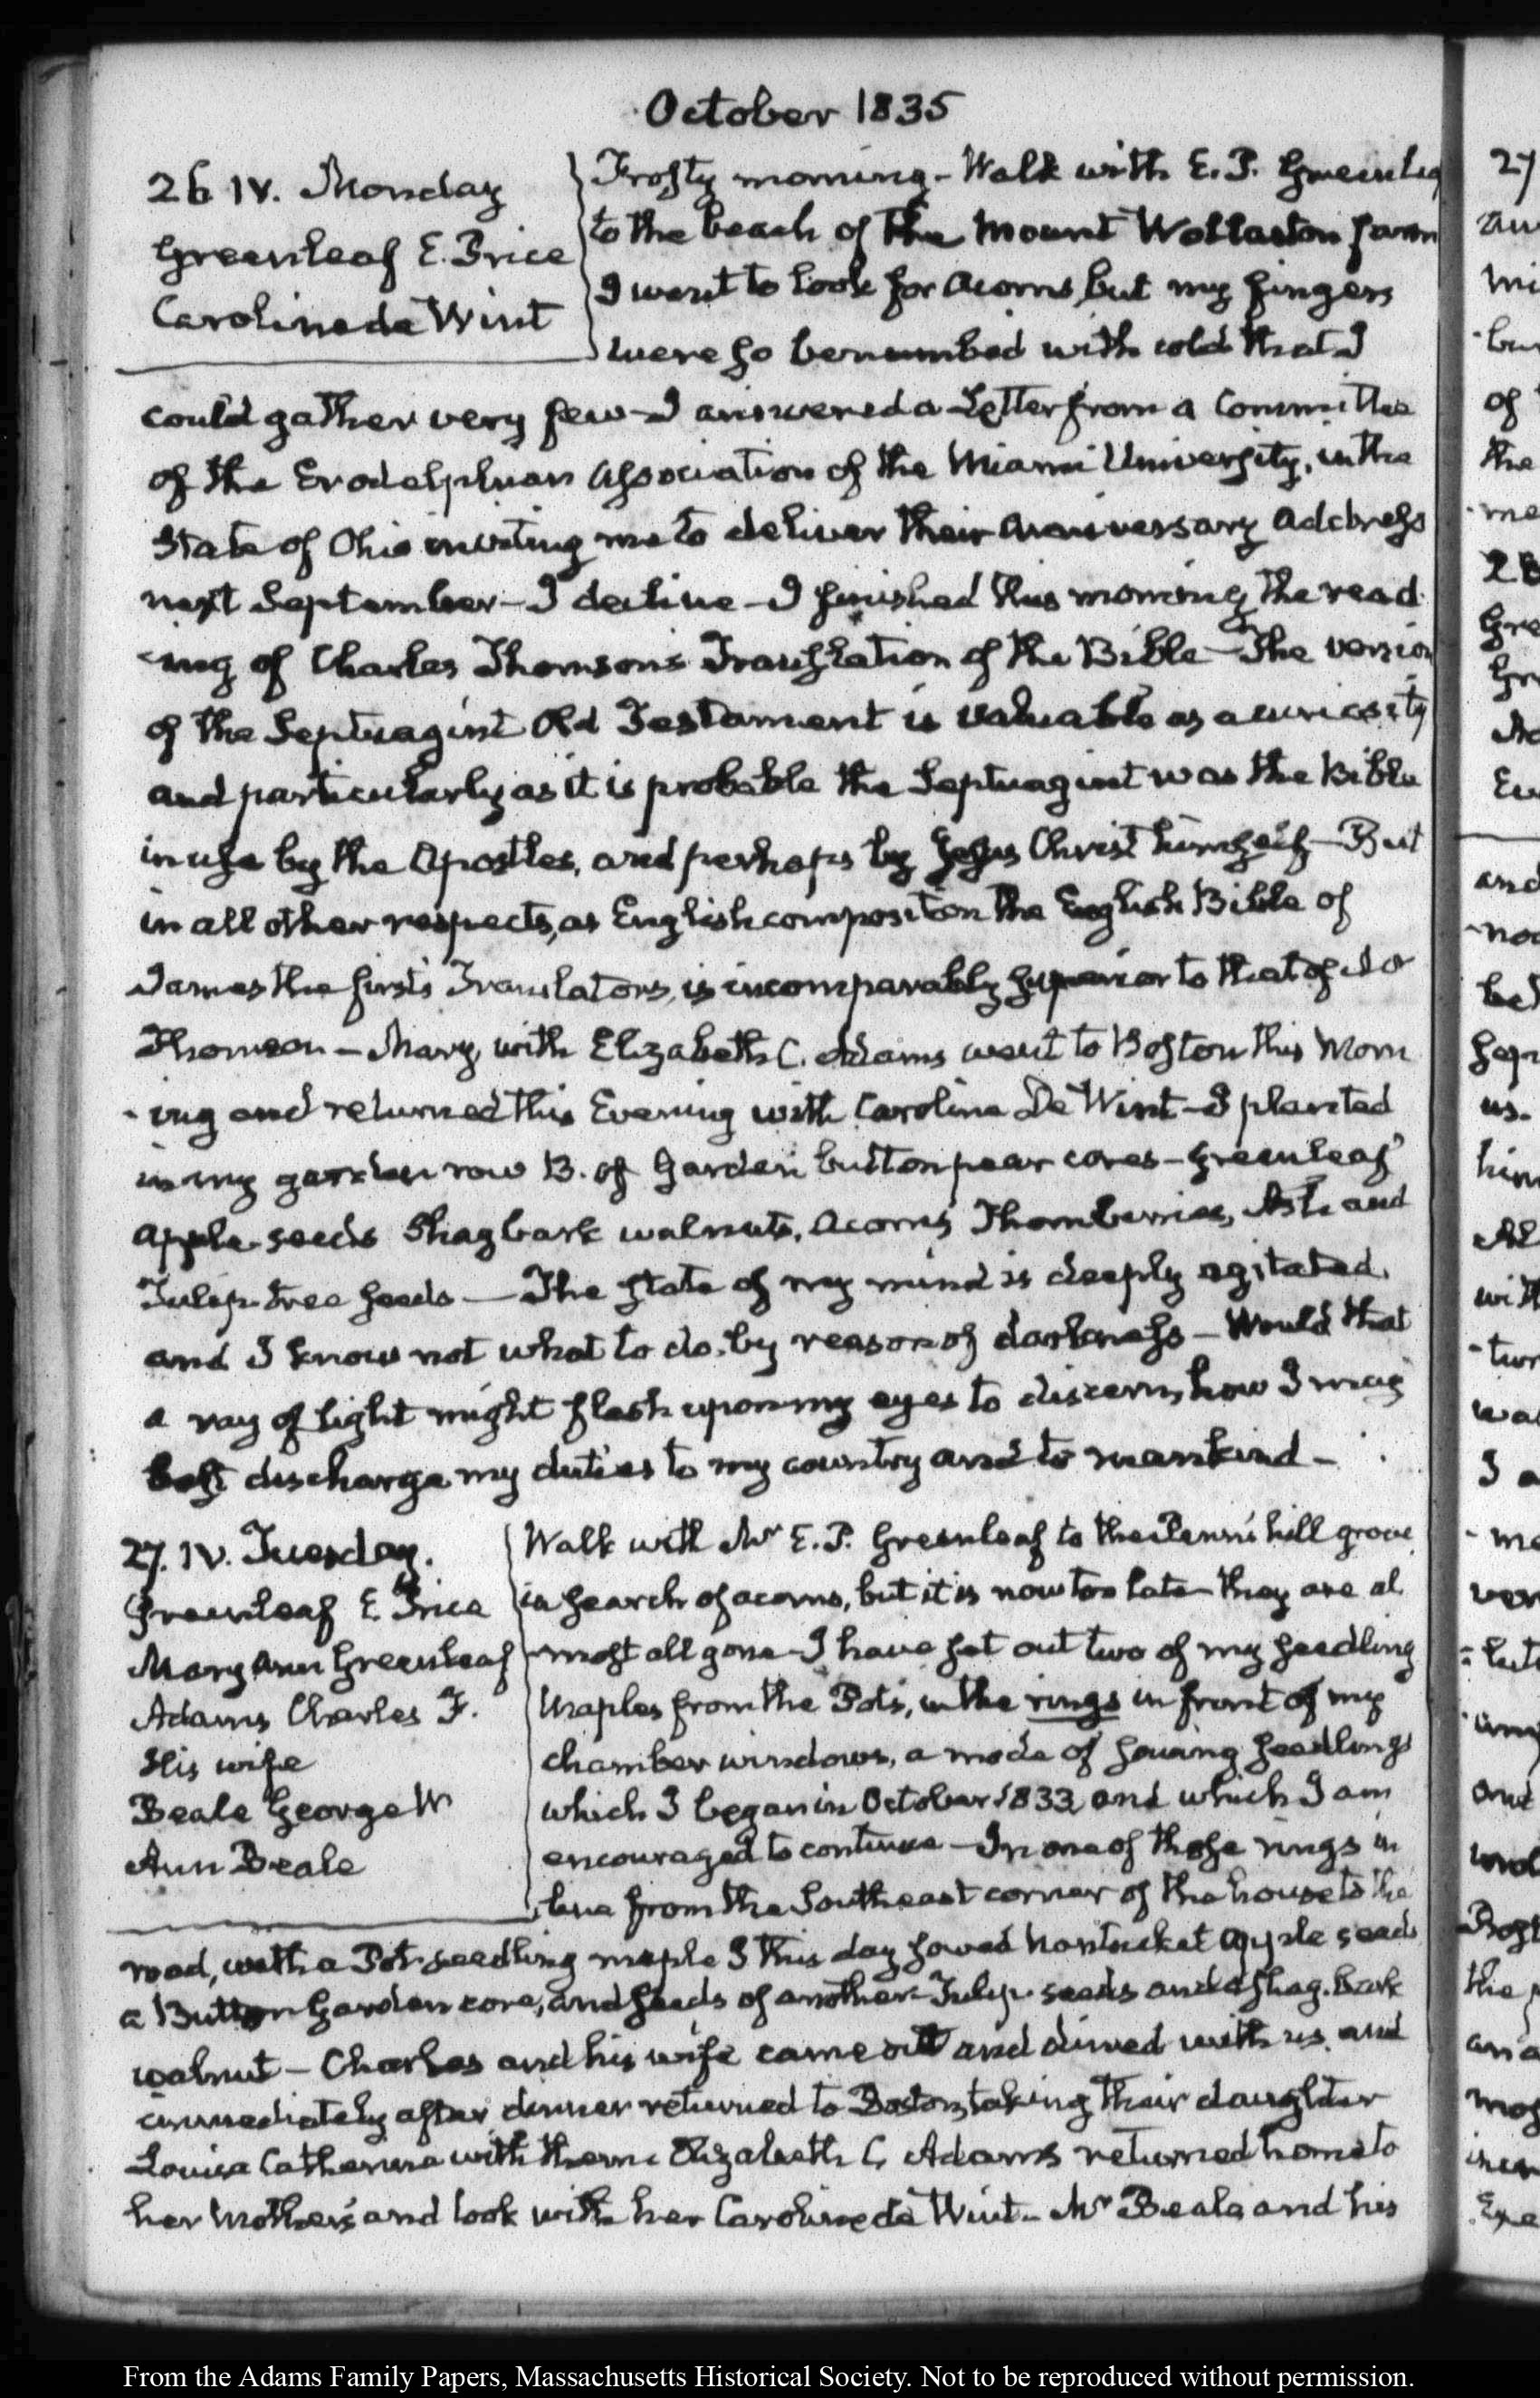 October 1835
26 IV. Monday
Greenleaf E. Price
Caroline de Wint
Frosty morning - Walk with E. P. Greenleaf
to the beach of the Mount Wollaston farm
I went to look for acorns, but my fingers
were so benumbed with cold that I
could gather very few - I answered a Letter from a Committee
of the Erodelphian Association of the Miami University, in the
State of Ohio inviting me to deliver their anniversary address
next September - I decline - I finished this morning the read
-ing of Charles Thomson's Translation of the Bible - The version
of the Septuagint Old Testament is valuable as a curiosity
and particularly as it is probable the Septuagint was the Bible
in use by the Apostles, and perhaps by Jesus Christ himself - But
in all other respects, as English composition the English Bible of
James the first's Translators, is incomparably superior to that of
Thomson - Mary, with Elizabeth C. Adams went to Boston this Morn
-ing and returned this Evening with Caroline De Wint - I planted
in my garden row B. of Garden button pear cores - Greenleaf
apple seeds Shagbark walnuts, acorns Thornberries, Ash and
Tulip-tree seeds - The state of my mind is deeply agitated,
and I know not what to do, by reason of darkness - Would that
a ray of light might flash upon my eyes to discern, how I may
best discharge my duties to my country and to mankind -
27. IV. Tuesday.
Greenleaf E. Price
Mary Ann Greenleaf
Adams Charles F.
His wife
Beale George W
Ann Beale
Walk with Mr E. P. Greenleaf to the Penn's hill grove
in search of acorns, but it is now too late - they are al
-most all gone - I have set out two of my seedling
Maples from the Pots, in the rings in front of my
chamber windows, a mode of sowing seedlings
which I began in October 1833 and which I am
encouraged to continue - In one of those rings in
line from the Southeast corner of the house to the
road, with a Pot-seedling maple I this day sowed Nantucket apple seeds
a Button Garden core, and seeds of another - Tulip seeds and a shag-bark
walnut - Charles and his wife came out and dined with us, and
immediately after dinner returned to Boston, taking their daughter
Louisa Catherine with them. Elizabeth C. Adams returned home to
her Mother's and took with her Caroline de Wint - Mr Beale and his
27
28
From the Adams Family Papers, Massachusetts Historical Society. Not to be reproduced without permission.